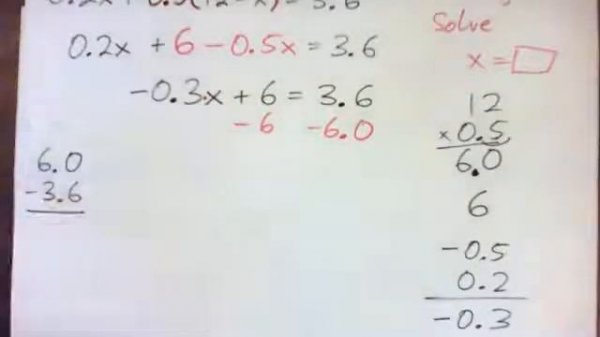 0.2x + 6 - 0.5x = 3.6
-0.3x + 6 = 3.6
-6 -6.0
6.0
-3.6
Solve
x = □
12
× 0.5
6.0
6
-0.5
0.2
-0.3